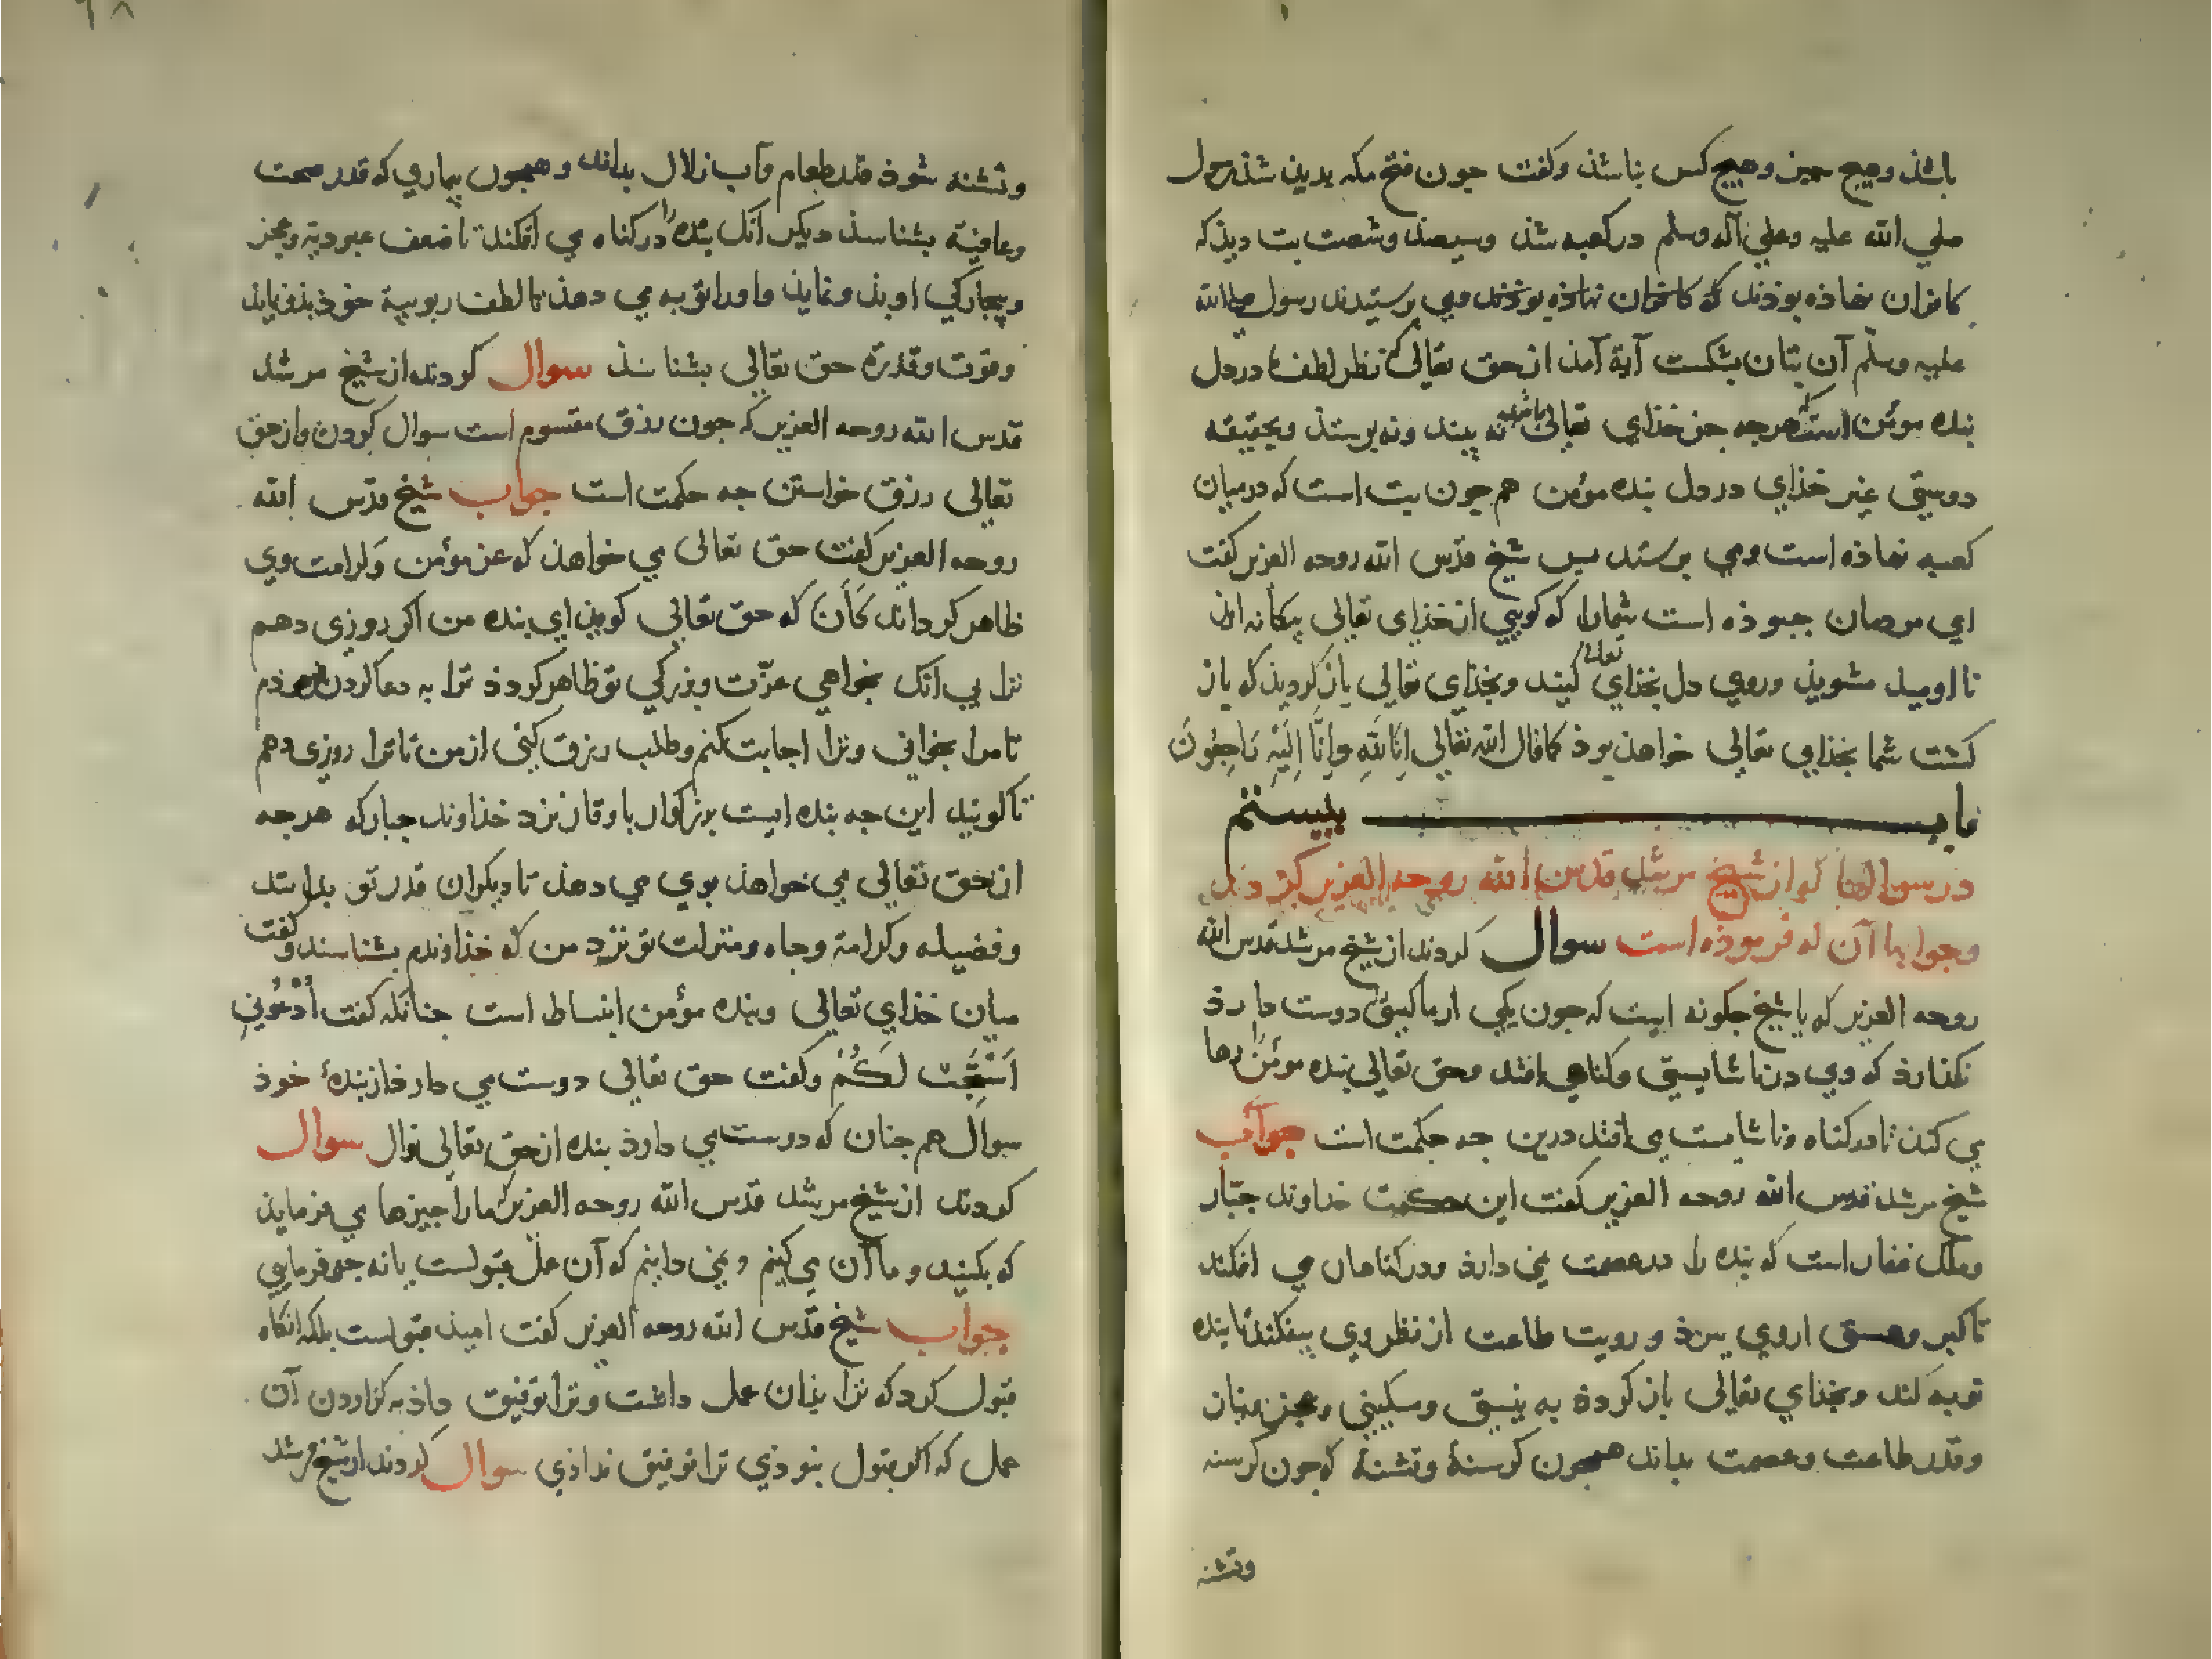 باشذ و هیچ چیز و هیچ کس نباشذ و کفت جون فتح مکه بدیذ شذ رسول
صلی الله علیه وعلی آله وسلم در کعبه شذ وسیصذ وشصت بت دیذ که
کافران نهاذه بوذند که کافران نهاذه بوذند ومی برستیدند رسول صلی الله
علیه وسلم آن بتان بشکست آیة آمذ از حق تعالی که نظر لطف ما در دل
بنده مؤمن است که هرجه جز خذای تعالی باشد نه بیند ونه برستذ وبحقیقه
دوستی غیر خذای در دل بنده مؤمن هم جون بت است که در میان
کعبه نهاذه است ومی برستند بس شیخ قدس الله روحه العزیز کفت
ای مردمان جبوذه است شمارا که کویی از خذای تعالی بیکانه اید
تا اومید مشویذ وروی دل بخذای تعالی کنید وبخذای تعالی باز کردیذ که باز
کشت شما بخذای تعالی خواهذ بوذ کما قال الله تعالی اِنَّا لِلّٰهِ وَاِنَّا اِلَیْهِ رَاجِعُونَ
باب بیستم
در سوالها که از شیخ مرشد قدس الله روحه العزیز کردند
وجوابها آن که فرموذه است سوال کردند از شیخ مرشد قدس الله
روحه العزیز که یا شیخ جکونه است که جون یکی از ما کسی را دوست دارذ
نکذارذ که وی در ناشایستی وکناهی افتد وحق تعالی بنده مؤمن را رها
می کند تا در کناه وناشایست می افتد درین جه حکمت است جواب
شیخ مرشد قدس الله روحه العزیز کفت این حکمت خداوند جبّار
وملک غفار است که بنده را در عصمت نمی دارذ ودر کناهان می افکند
تا کبر و از وی ببرذ و رویت طاعت از نظر وی بیفکند تا بنده
توبه کند وبخذای تعالی باز کردذ به نیستی ومسکینی وعجز ونیاز
وقدر طاعت وعصمت بداند همجون کرسنۀ وتشنۀ که جون کرسنه
وتشنه
وتشنه شوذ قدر طعام وآب زلال بداند وهمجون بیماری که قدر صحت
وعافیة بشناسذ دیکر آنک بنده را در کناه می افکند تا ضعف عبودیة وعجز
وبیجارکی او بذو نمایذ واورا توبه می دهذ تا لطف ربوبیة خوذ بذو نمایذ
وقوت وقدرة حق تعالی بشناسذ سوال کردند از شیخ مرشد
قدس الله روحه العزیز که جون رزق مقسوم است سوال کردن واز حق
تعالی رزق خواستن جه حکمت است جواب شیخ قدس الله
روحه العزیز کفت حق تعالی می خواهذ که عز مؤمن وکرامت وی
ظاهر کرداند کَاَنَ که حق تعالی کویذ ای بنده من اکر روزی دهم
ترا بی انک بخواهی عزّت وبزرکی تو ظاهر کردذ ترا به دعا کردن
تا مرا بخوانی وترا اجابت کنم وطلب رزق کنی از من تا ترا روزی دهم
تا کویند این جه بنده ایست بزرکوار با وقار نزد خذاوند جبار که هرجه
از حق تعالی می خواهذ بوی می دهذ تا دیکران قدر تو بدانند
وفضیله وکرامة وجاه ومنزلت تو نزد من که خذاوندم بشناسند وکفت
میان خذای تعالی وبنده مؤمن انبساط است جنانکه کفت اُدْعُونِی
اَسْتَجِبْ لَکُمْ وکفت حق تعالی دوست می دارذ از بندۀ خوذ
سوال هم جنان که دوست می دارذ بنده از حق تعالی نوال سوال
کردند از شیخ مرشد قدس الله روحه العزیز که مارا جیزها می فرمایذ
که بکنید وما آن می کنیم ونمی دانیم که آن عمل قبولست یا نه جه فرمایی
جواب شیخ قدس الله روحه العزیز کفت امیذ قبولست بلکه آنکاه
قبول کرد که ترا بذان عمل داشت وترا توفیق داذ به کزاردن آن
عمل که اکر قبول نبوذی ترا توفیق نداذی سوال کردند از شیخ مرشد